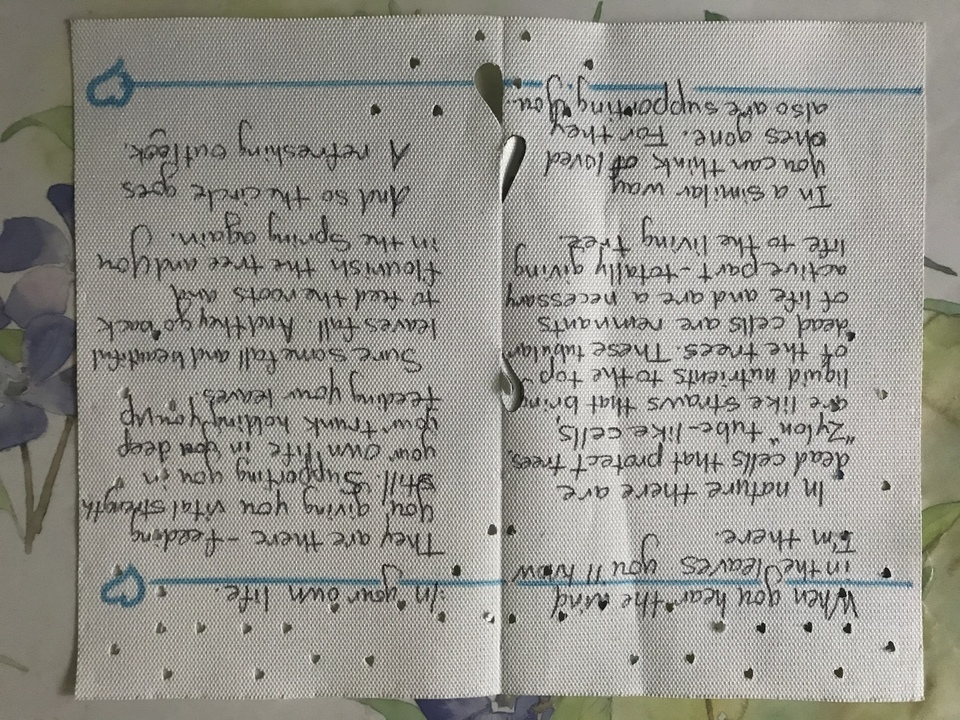 When you hear the wind
in the leaves you'll know
I'm there.
In nature there are
dead cells that protect trees,
"Zylon" tube-like cells,
are like straws that bring
liquid nutrients to the top
of the trees. These tubular
dead cells are remnants
of life and are a necessary
active part - totally giving
life to the living tree.
In a similar way
you can think of loved
ones gone. For they
also are supporting you...
...In your own life.
They are there - feeding
you, giving you vital strength
still supporting you in
your own life in you deep
your trunk holding you up
feeding your leaves
Sure some fall and beautiful
leaves fall. And they go back
to feed the roots and
flourish the tree and you
in the Spring again.
And so the circle goes
A refreshing outlook.